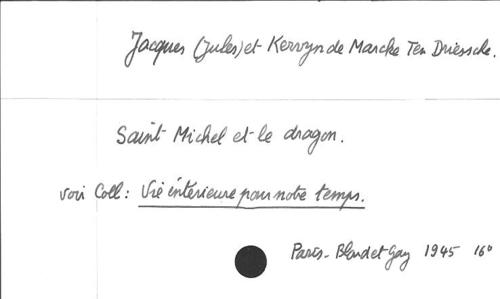 Jacques (Jules) et Kervyn de Marcke Ten Driessche.
Saint Michel et le dragon.
voir Coll: Vie intérieure pour notre temps.
Paris - Bloud et Gay 1945 16°